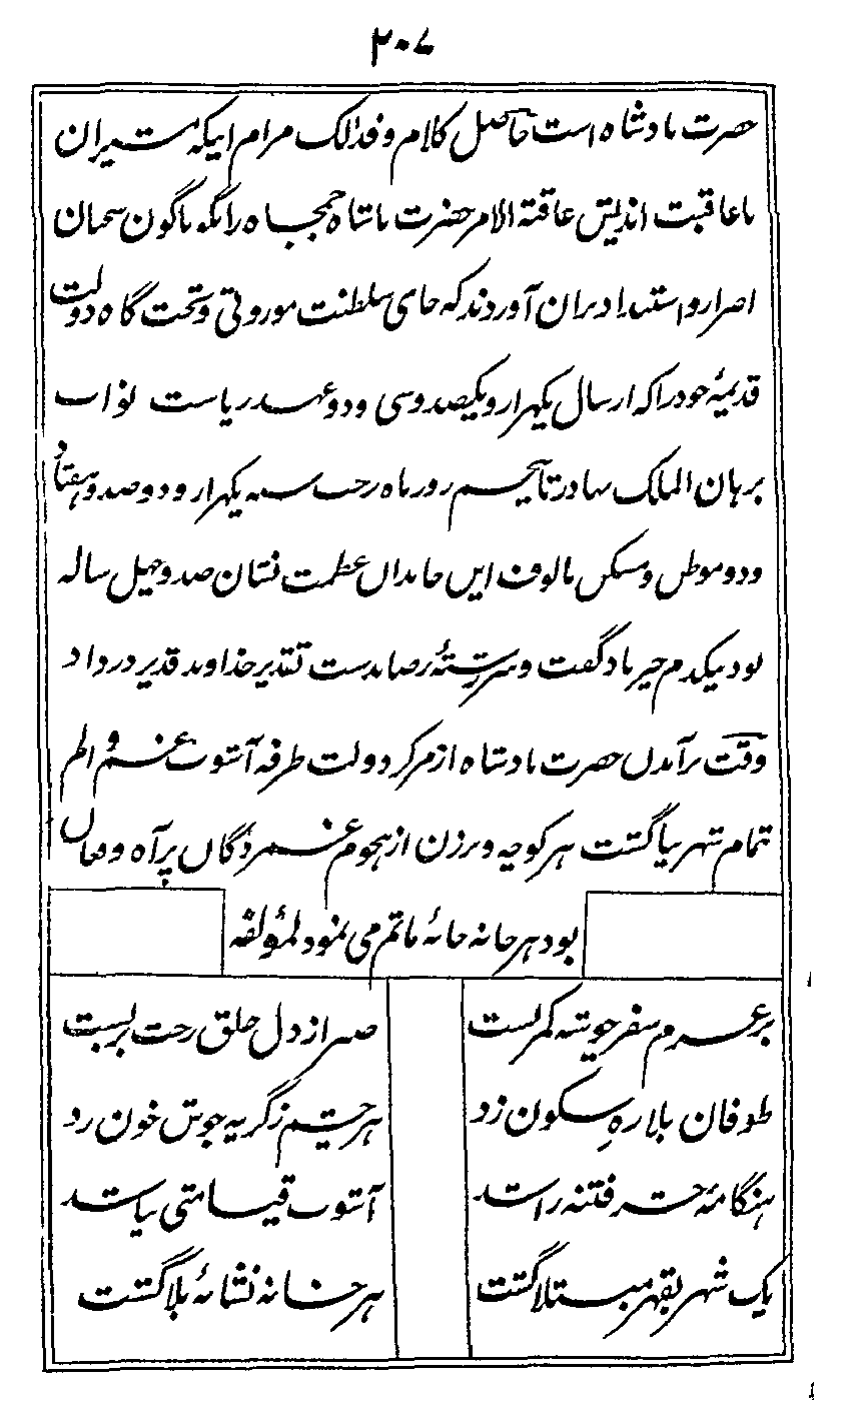 ۲۰۷
حضرت بادشاه است حاصل کلام و فذالک مرام اینکه مشیران
با عاقبت اندیش عاقبة الامر حضرت بادشاه جمجاه را بگوناگون سخنان
اصرار و استبداد بران آوردند که جای سلطنت موروثی و تخت گاه دولت
قدیمهٔ خود را که از سال یکهزار و یکصد و سی و دو عهد ریاست نواب
برہان الملک بہادر تا پنجم روز ماه رجب سنه یکهزار و دو صد و ہفتاد
و دو موطن و مسکن مالوف این خاندان عظمت نشان صد و چهل ساله
بود بیکدم خیرباد گفت و سررشتهٔ رضا بدست تقدیر خداوند قدیر در داد
وقت برآمدن حضرت بادشاه از مرکز دولت طرفه آشوب غم و الم
تمام شهر بپا گشت هر کوچه و برزن از هجوم غمزدگان پر آه و فغان
بود هر خانه خانهٔ ماتم می نمود لمؤلفه
بر عزم سفر چو شه کمر بست
صبر از دل خلق رخت بر بست
طوفان بلا ره سکون زد
هر چشم ز گریه جوش خون زد
هنگامهٔ حشر فتنه زا شد
آشوب قیامتی بپا شد
یک شهر بقهر مبتلا گشت
هر خانه نشانهٔ بلا گشت